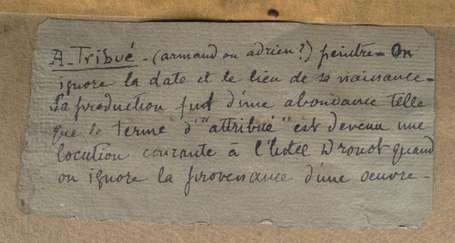 A-Tribué - (armand ou adrien?) peintre - On
ignore la date et le lieu de sa naissance -
Sa production fut d'une abondance telle
que le terme d'"attribué" est devenu une
locution courante à l'hotel Drouot quand
on ignore la provenance d'une oeuvre -